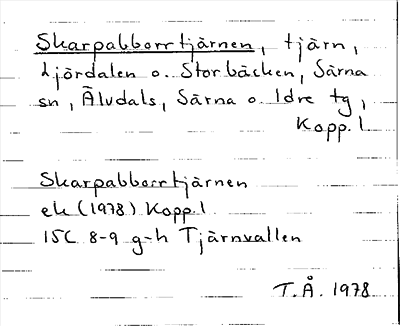 Skarpabborrtjärnen, tjärn,
Ljördalen o. Storbäcken, Särna
sn, Älvdals, Särna o Idre tg,
Kopp. l
Skarpabborrtjärnen
ek (1978) Kopp. l
15C 8-9 g-h Tjärnvallen
T.Å. 1978